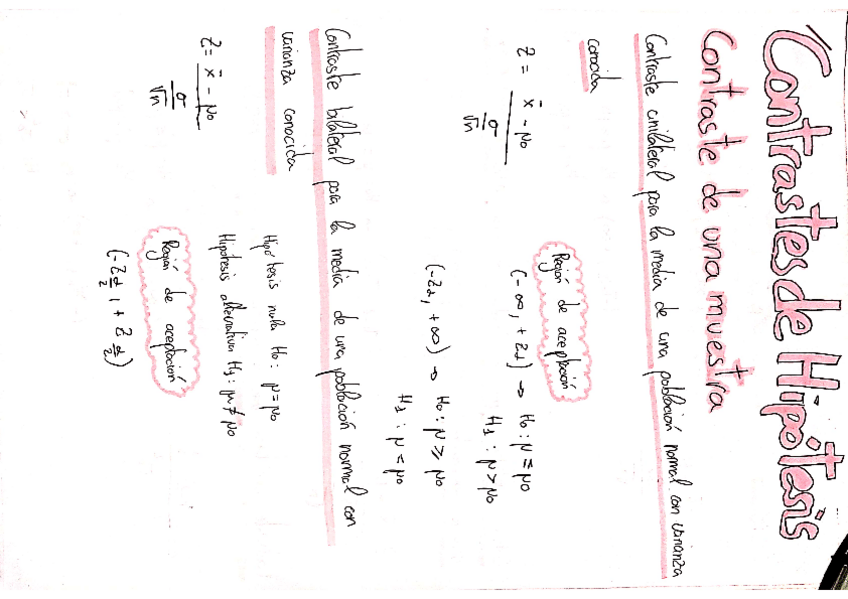 Contrastes de Hipótesis
Contraste de una muestra
Contraste unilateral para la media de una población normal con varianza
conocida
Región de aceptación
Z = x̄ - μ₀ / σ/√n
(-∞, +Zα) → H₀: μ ≤ μ₀
H₁: μ > μ₀
(-Zα, +∞) → H₀: μ ≥ μ₀
H₁: μ < μ₀
Contraste bilateral para la media de una población normal con
varianza conocida
Z = x̄ - μ₀ / σ/√n
Hipótesis nula H₀: μ = μ₀
Hipótesis alternativa H₁: μ ≠ μ₀
Región de aceptación
(-Zα/2, +Zα/2)